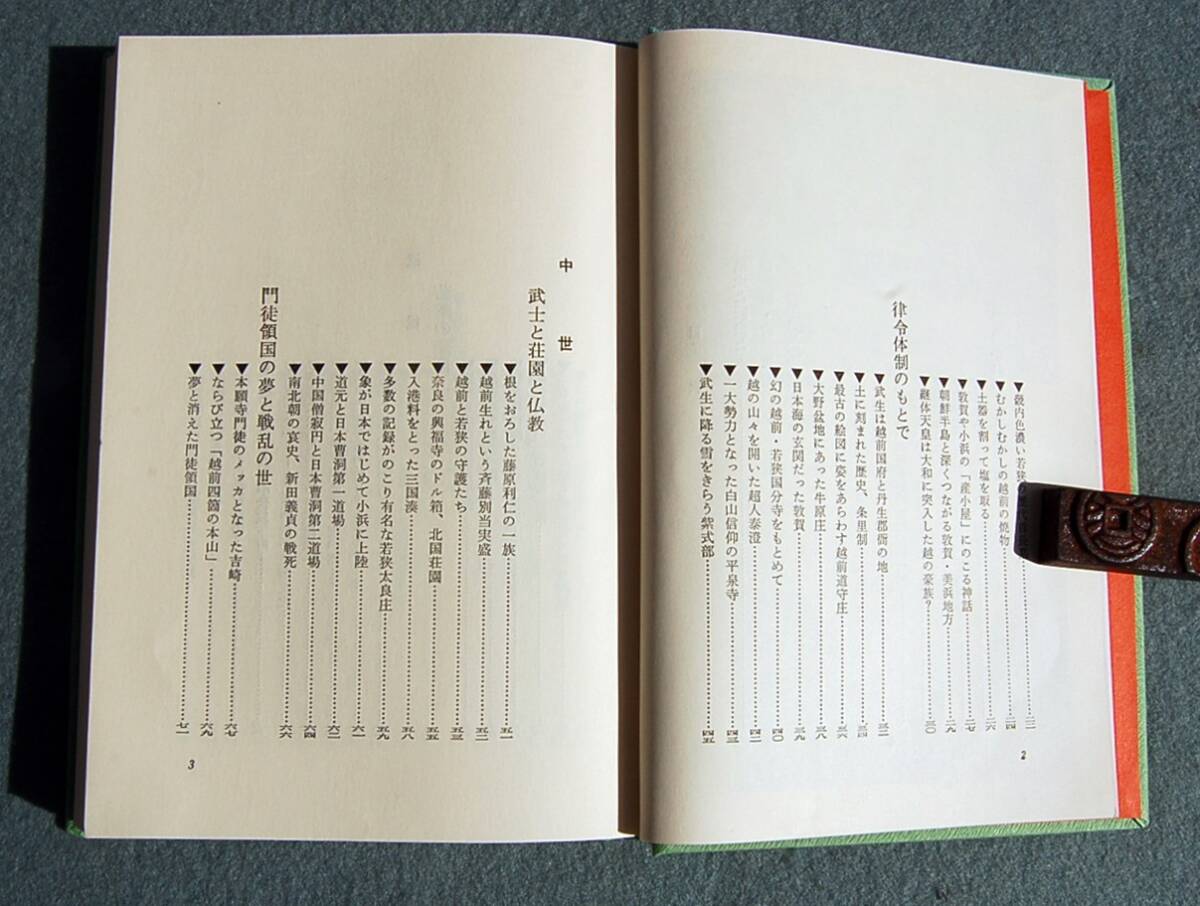 ▼畿内色濃い若狭……二二
▼むかしむかしの越前の焼物……二四
▼土器を割って塩を取る……二六
▼敦賀や小浜の「産小屋」にのこる神話……二七
▼朝鮮半島と深くつながる敦賀・美浜地方……二九
▼継体天皇は大和に突入した越の豪族？……三〇
律令体制のもとで
▼武生は越前国府と丹生郡衙の地……三二
▼土に刻まれた歴史、条里制……三四
▼最古の絵図に姿をあらわす越前道守庄……三六
▼大野盆地にあった牛原庄……三八
▼日本海の玄関だった敦賀……三九
▼幻の越前・若狭国分寺をもとめて……四〇
▼越の山々を開いた超人泰澄……四二
▼一大勢力となった白山信仰の平泉寺……四三
▼武生に降る雪をきらう紫式部……四五
2
中世
武士と荘園と仏教
▼根をおろした藤原利仁の一族……五一
▼越前生れという斉藤別当実盛……五二
▼越前と若狭の守護たち……五三
▼奈良の興福寺のドル箱、北国荘園……五五
▼入港料をとった三国湊……五八
▼多数の記録がのこり有名な若狭太良庄……五九
▼象が日本ではじめて小浜に上陸……六一
▼道元と日本曹洞第一道場……六二
▼中国僧寂円と日本曹洞第二道場……六四
▼南北朝の哀史、新田義貞の戦死……六六
門徒領国の夢と戦乱の世
▼本願寺門徒のメッカとなった吉崎……六七
▼ならび立つ「越前四箇の本山」……六九
▼夢と消えた門徒領国……七一
3